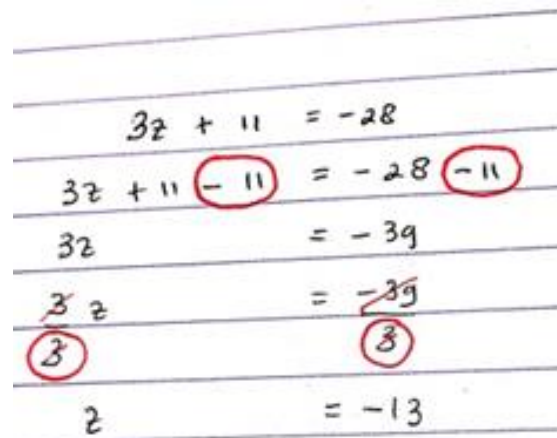 3z + 11 = -28
3z + 11 - 11 = -28 - 11
3z = -39
3/3 z = -39/3
z = -13